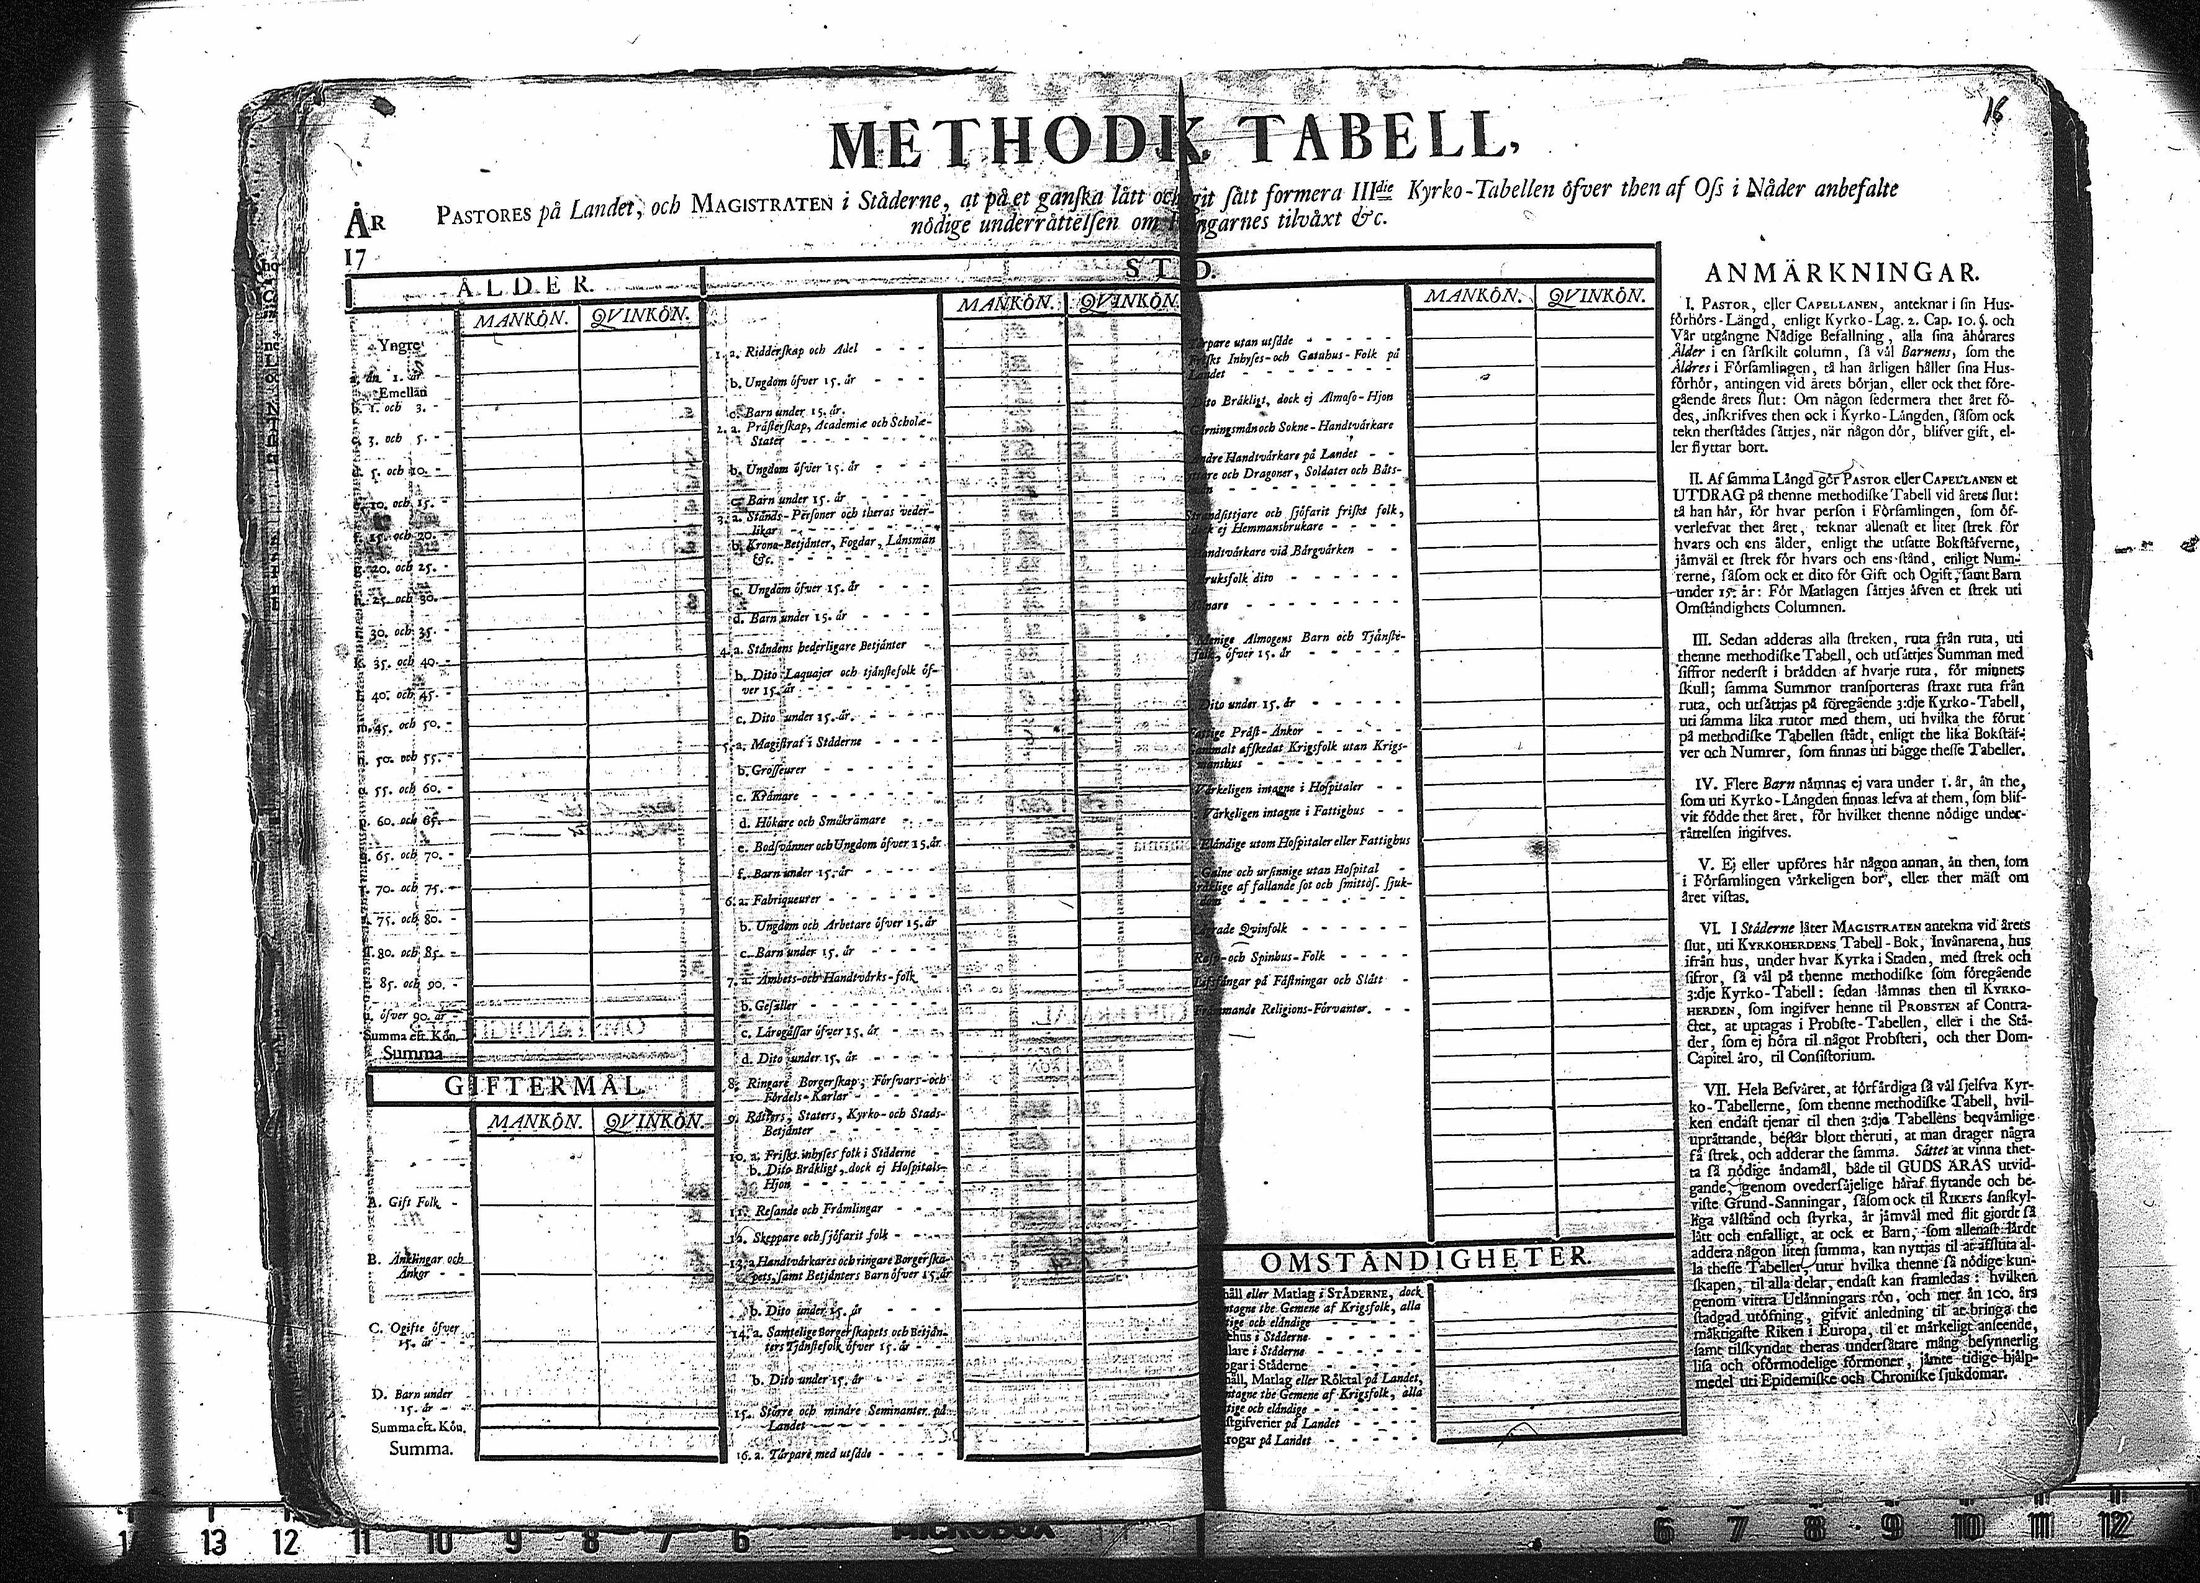 16
METHODK TABELL,
PASTORES på Landet, och MAGISTRATEN i Städerne, at på et ganſka lått och git ſått formera IIIdie Kyrko-Tabellen öfver then af Oſs i Nåder anbefalte
nödige underråttelſen om ngarnes tilvåxt &c.
ÅR
17
ÅLDER.
MANKÖN. QVINKÖN.
Yngre
än 1. år
Emellan
b. 1. och 3. -
c. 3. och 5. -
5. och 10. -
10. och 15.
15. och 20.
20. och 25. -
h. 25. och 30.
30. och 35.
k. 35. och 40. -
40. och 45. -
m. 45. och 50. -
50. och 55. -
55. och 60. -
60. och 65. -
65. och 70. -
70. och 75. -
75. och 80. -
80. och 85. -
85. och 90. -
öfver 90. år -
Summa eft. Kön.
Summa
GIFTERMÅL
MANKÖN. QVINKÖN.
A. Gift Folk -
B. Änklingar och
Änkor - -
C. Ogifte öfver
15. år - -
D. Barn under
15. år - -
Summa eft. Kön.
Summa.
ST D.
MANKÖN. QVINKÖN.
1. a. Ridderſkap och Adel - - -
b. Ungdom öfver 15. år - - -
c. Barn under 15. år.
2. a. Pråſterſkap, Academiæ och Scholæ-
Stater - - - - -
b. Ungdom öfver 15. år - - -
c. Barn under 15. år - - - -
3. a. Stånds-Perſoner och theras veder-
likar - - - - - -
b. Krono-Betjånter, Fogdar, Lånsmån
&c. - - - - - -
c. Ungdom öfver 15. år - - -
d. Barn under 15. år - - - -
4. a. Ståndens hederligare Betjånter -
b. Dito Laquajer och tjånſtefolk öf-
ver 15. år - - - - -
c. Dito under 15. år. - - - -
5. a. Magiſtrat i Städerne - - - -
b. Groſſeurer - - - - - -
c. Kråmare - - - - - -
d. Hökare och Småkrämare - - -
e. Bodſvånner och Ungdom öfver 15. år
f. Barn under 15. år - - - -
6. a. Fabriqueurer - - - - -
b. Ungdom och Arbetare öfver 15. år
c. Barn under 15. år - - - -
7. a. Åmbets-och Handtvårks-folk
b. Geſåller - - - - - -
c. Lårogåſſar öfver 15. år - - -
d. Dito under 15. år - - - -
8. Ringare Borgerſkap, Förſvars-och
Fördels-Karlar - - - - -
9. Råtters, Staters, Kyrko-och Stads-
Betjånter - - - - - -
10. a. Friſkt inhyſes folk i Städerne -
b. Dito Bråkligt, dock ej Hoſpitals-
Hjon - - - - - -
11. Reſande och Främlingar - - -
12. Skeppare och ſjöfarit folk - - -
13. a. Handtvårkares och ringare Borgerſka-
pets, ſamt Betjånters Barn öfver 15. år
b. Dito under 15. år - - - -
14. a. Samtelige Borgerſkapets och Betjån-
ters Tjånſtefolk öfver 15. år - -
b. Dito under 15. år - - - -
15. Större och mindre Seminanter på
Landet - - - - - -
16. a. Tårpare med utſåde - - - -
MANKÖN. QVINKÖN.
rpare utan utſåde - - - - -
ſkt Inhyſes-och Gatuhus-Folk på
Landet - - - - - -
ito Bråkligt, dock ej Almoſo-Hjon
rningsmån och Sokne-Handtvårkare
ndre Handtvårkare på Landet - -
ttare och Dragoner, Soldater och Båts-
mån - - - - - -
randſittjare och ſjöfarit friſkt folk,
k ej Hemmansbrukare - - - -
andtvårkare vid Bårgvårken - -
ruksfolk dito - - - - - -
nare - - - - - - -
enige Almogens Barn och Tjånſte-
folk, öfver 15. år - - - -
Dito under 15. år - - - - -
attige Pråſt-Ånkor - - - - -
ammalt afſkedat Krigsfolk utan Krigs-
manshus - - - - - -
Vårkeligen intagne i Hoſpitaler - -
Vårkeligen intagne i Fattighus - -
Elåndige utom Hoſpitaler eller Fattighus
Galne och urſinnige utan Hoſpital -
råklige af fallande ſot och ſmittoſ. ſjuk-
dom - - - - - - -
ågrade Qvinfolk - - - - -
Raſp-och Spinhus-Folk - - - -
Lifsfångar på Fåſtningar och Slått -
Fråmmande Religions-Förvanter. - -
OMSTÅNDIGHETER.
håll eller Matlag i STÅDERNE, dock
ntagne the Gemene af Krigsfolk, alla
tige och elåndige - - - - -
hus i Städerne - - - - -
lare i Städerne - - - - -
ogar i Städerne - - - - -
håll, Matlag eller Röktal på Landet,
ntagne the Gemene af Krigsfolk, alla
tige och elåndige - - - - -
ſtgifverier på Landet - - - -
rogar på Landet - - - - -
ANMÄRKNINGAR.
I. PASTOR, eller CAPELLANEN, anteknar i ſin Hus-
förhörs-Längd, enligt Kyrko-Lag. 2. Cap. 10. §. och
Vår utgångne Nådige Befallning, alla ſina åhörares
Ålder i en ſårſkilt column, ſå vål Barnens, ſom the
Åldres i Förſamlingen, tå han årligen håller ſina Hus-
förhör, antingen vid årets början, eller ock thet före-
gående årets ſlut: Om någon ſedermera thet året fö-
des, inſkrifves then ock i Kyrko-Längden, ſåſom ock
tekn therſtådes ſåttjes, når någon dör, blifver gift, el-
ler flyttar bort.
II. Af ſamma Långd gör PASTOR eller CAPELLANEN et
UTDRAG på thenne methodiſke Tabell vid årets ſlut:
tå han hår, för hvar perſon i Förſamlingen, ſom öf-
verlefvat thet året, teknar allenaſt et litet ſtrek för
hvars och ens ålder, enligt the utſatte Bokſtäfverne,
jämväl et ſtrek för hvars och ens ſtånd, enligt Num-
rerne, ſåſom ock et dito för Gift och Ogift, ſamt Barn
under 15. år: För Matlagen ſåttjes åfven et ſtrek uti
Omſtåndighets Columnen.
III. Sedan adderas alla ſtreken, ruta från ruta, uti
thenne methodiſke Tabell, och utſåttjes Summan med
ſiffror nederſt i brådden af hvarje ruta, för minnets
ſkull; ſamma Summor tranſporteras ſtraxt ruta från
ruta, och utſåttjas på föregående 3:dje Kyrko-Tabell,
uti ſamma lika rutor med them, uti hvilka the förut
på methodiſke Tabellen ſtådt, enligt the lika Bokſtåf-
ver och Numrer, ſom finnas uti bågge theſſe Tabeller.
IV. Flere Barn nåmnas ej vara under 1. år, ån the,
ſom uti Kyrko-Långden finnas lefva af them, ſom blif-
vit födde thet året, för hvilket thenne nödige under-
råttelſen ingifves.
V. Ej eller upföres hår någon annan, ån then, ſom
i Förſamlingen vårkeligen bor, eller ther måſt om
året viſtas.
VI. I Städerne låter MAGISTRATEN antekna vid årets
ſlut, uti KYRKOHERDENS Tabell-Bok, Invånarena, hus
ifrån hus, under hvar Kyrka i Staden, med ſtrek och
ſifror, ſå vål på thenne methodiſke ſom föregående
3:dje Kyrko-Tabell: ſedan låmnas then til KYRKO-
HERDEN, ſom ingifver henne til PROBSTEN af Contra-
ctet, at uptagas i Probſte-Tabellen, eller i the Stå-
der, ſom ej höra til något Probſteri, och ther Dom-
Capitel åro, til Conſiſtorium.
VII. Hela Beſvåret, at förfårdiga ſå vål ſjelfva Kyr-
ko-Tabellerne, ſom thenne methodiſke Tabell, hvil-
ken endaſt tjenar til then 3:dje Tabellens beqvåmlige
upråttande, beſtår blott theruti, at man drager några
få ſtrek, och adderar the ſamma. Såttet at vinna thet-
ta ſå nödige åndamål, både til GUDS ÅRAS utvid-
gande, genom ovederſåjelige håraf flytande och be-
viſte Grund-Sanningar, ſåſom ock til RIKETS ſanſkyl-
liga vålſtånd och ſtyrka, år jåmvål med flit gjordt ſå
lått och enfalligt, at ock et Barn, ſom allenaſt lårdt
addera någon liten ſumma, kan nyttjas til at afſluta al-
la theſſe Tabeller, utur hvilka thenne ſå nödige kun-
ſkapen, til alla delar, endaſt kan framledas: hvilken
genom vittra Utlånningars rön, och mer ån 100. års
ſtadgad utöfning, gifvit anledning til at bringa the
måktigaſte Riken i Europa, til et mårkeligt anſeende,
ſamt tilſkyndat theras underſåtare mång beſynnerlig
liſa och oförmodelige förmoner, jåmte tidige hjålp-
medel uti Epidemiſke och Chroniſke ſjukdomar.
13 12 11 10 9 8 7 6
MICROBOX
6 7 8 9 10 11 12